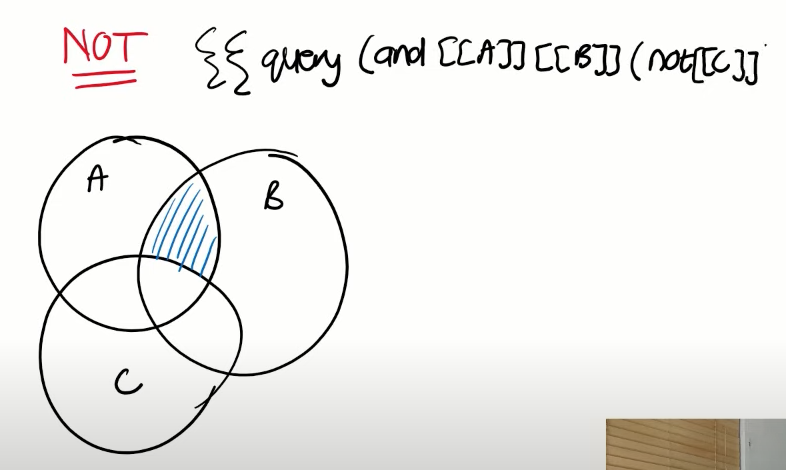 NOT {{ query (and [[A]] [[B]] (not[[C]]
A
B
C